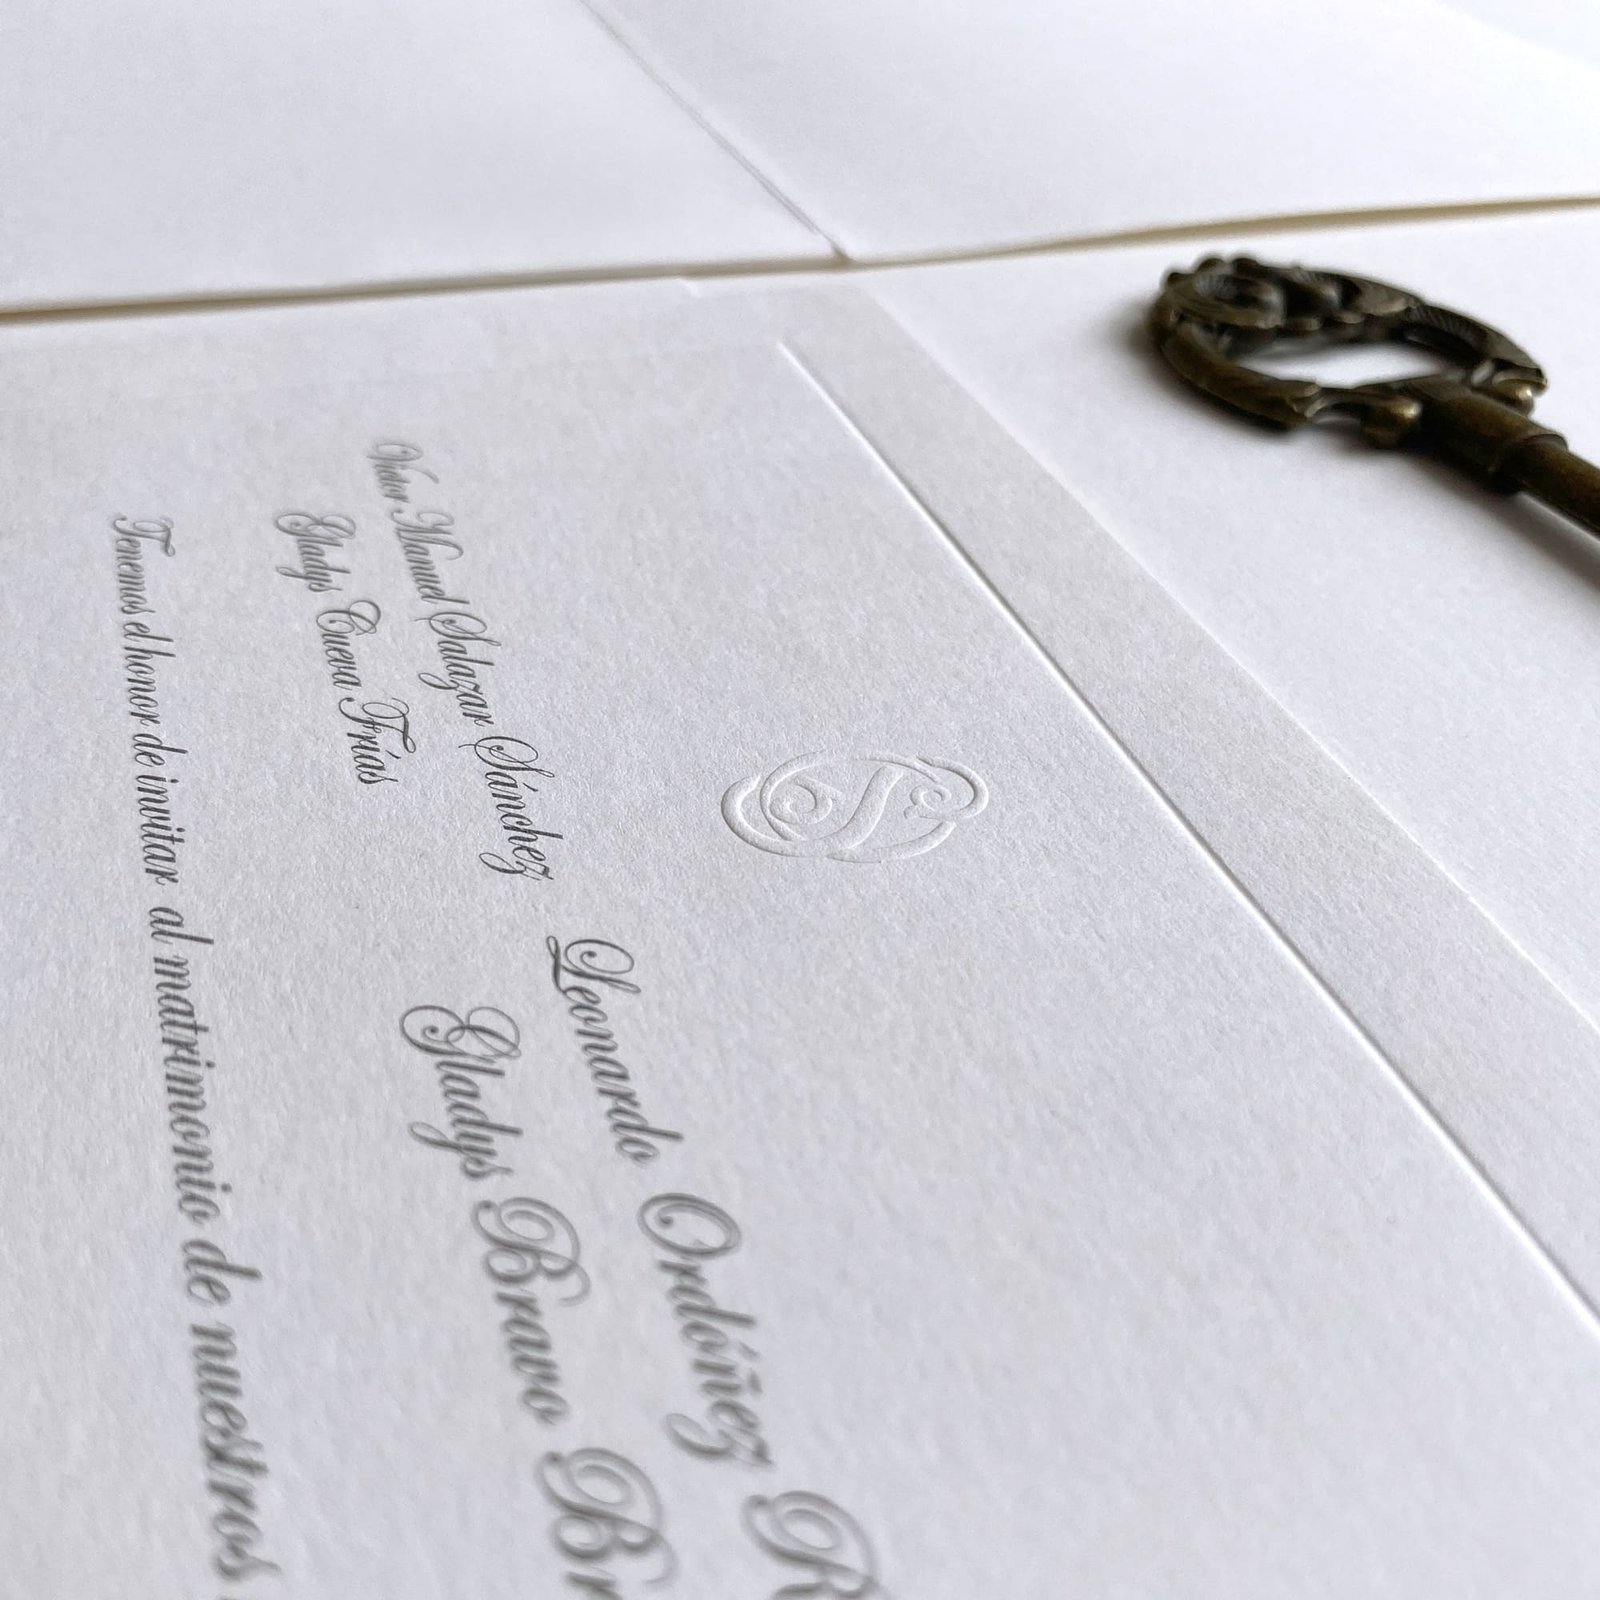 Victor Manuel Salazar Sánchez
Gladys Cueva Frías
Leonardo Ordóñez
Gladys Bravo
Tenemos el honor de invitar al matrimonio de nuestros